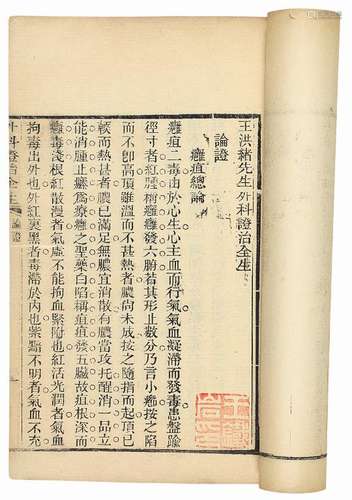 王洪緒先生外科證治全生
論證
癰疽總論
癰疽二毒由於心生心主血而行氣氣血凝滯而發毒患盤踰
徑寸者紅腫稱癰癰發六腑若其形止數分乃言小癤按之陷
而不卽高頂雖溫而不甚熱者膿尚未成按之隨指而起旣
輭而熱甚者膿已滿足無膿宜消散有膿當攻托醒消一品立
能消腫止疼爲療癰之聖藥白陷稱疽疽發五臟故疽根深而
癰毒淺根紅散漫者氣虛不能拘血緊附也紅活光潤者氣血
拘毒出外也外紅裏黑者毒滯於內也紫黯不明者氣血不充
外科證治全生 論證